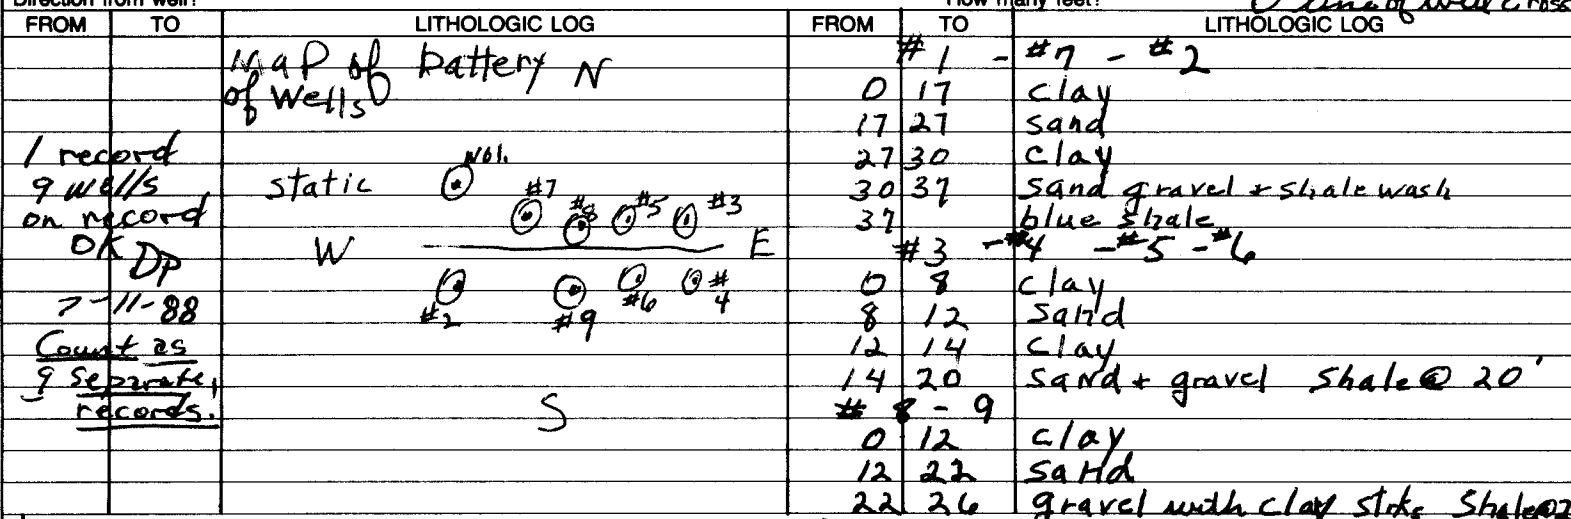 Direction from well?
How many feet?
FROM TO LITHOLOGIC LOG FROM TO LITHOLOGIC LOG
Map of battery N
of Wells
1 record
9 wells
on record
OK DP
7-11-88
Count as
9 separate
records.
static
No1.
#7
#8
#5
#3
W E
#2
#9
#6
#4
S
#1 - #7 - #2
0 17 clay
17 27 sand
27 30 clay
30 37 sand gravel + shale wash
37 blue shale
#3 - #4 - #5 - #6
0 8 clay
8 12 sand
12 14 clay
14 20 sand + gravel Shale @ 20'
# 8 - 9
0 12 clay
12 22 sand
22 26 gravel with clay strks Shale@2